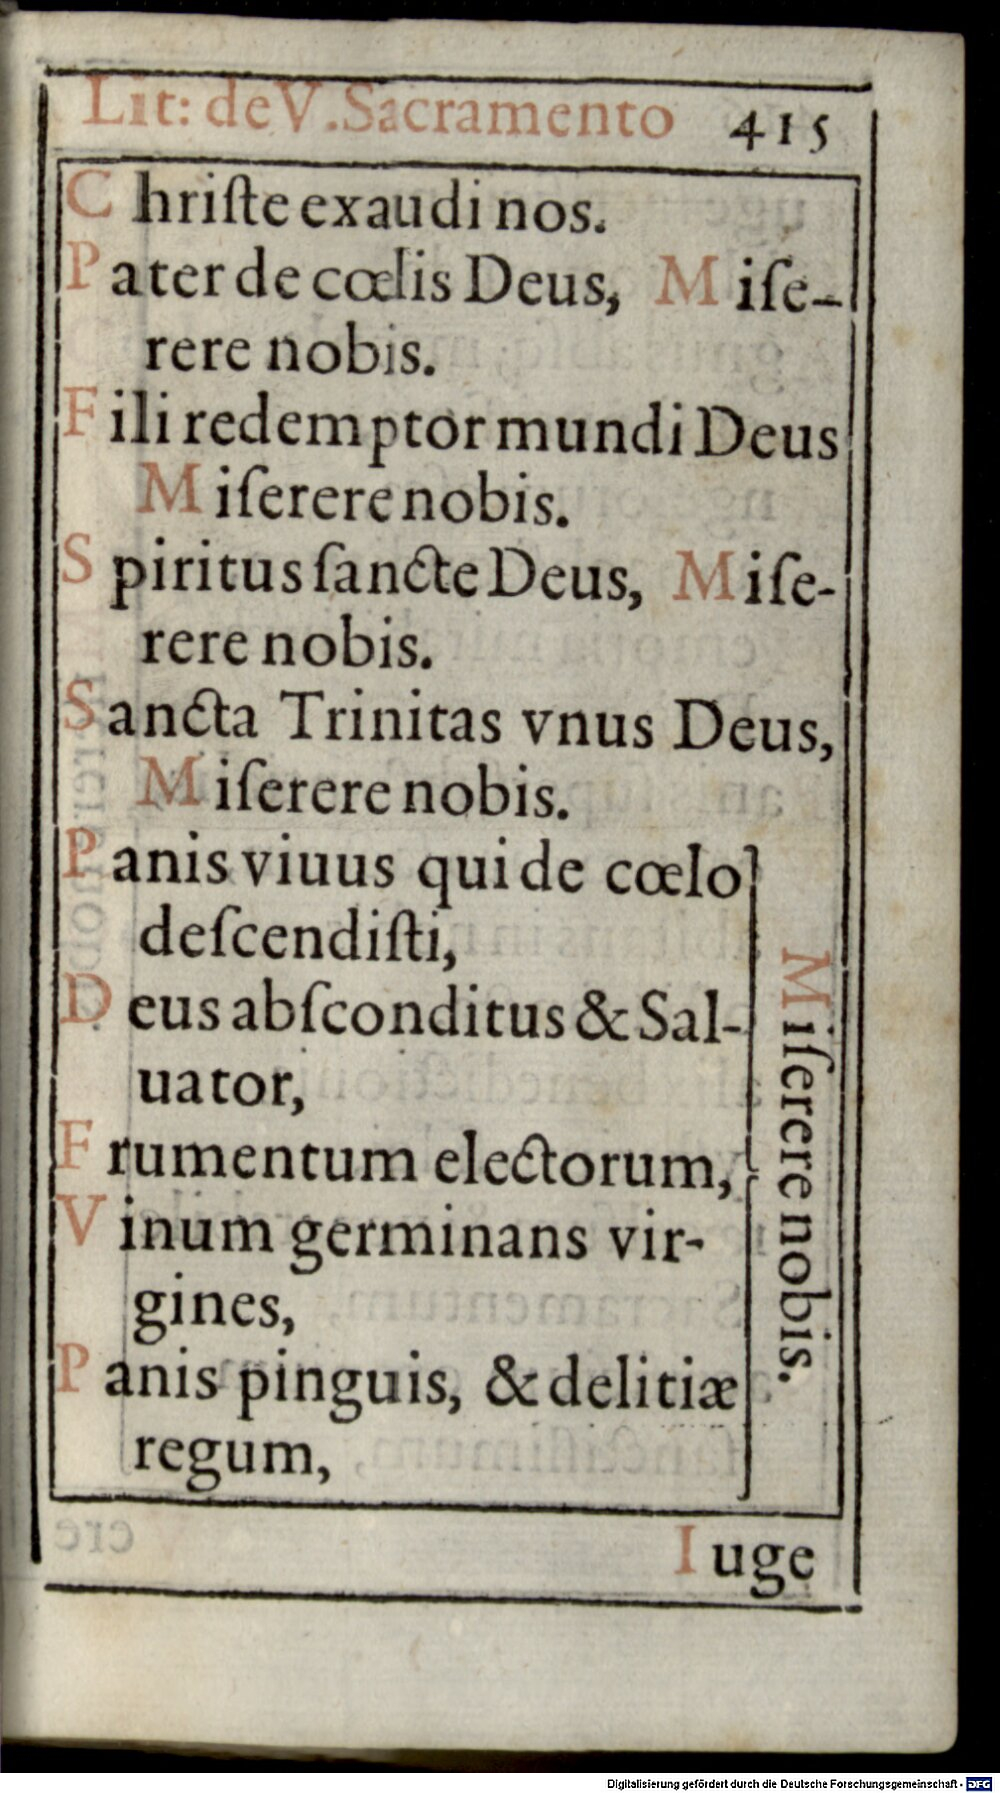 Lit: de V. Sacramento 415
Chriſte exaudi nos.
Pater de cœlis Deus, Miſe-
rere nobis.
Fili redemptor mundi Deus
Miſerere nobis.
Spiritus ſancte Deus, Miſe-
rere nobis.
Sancta Trinitas vnus Deus,
Miſerere nobis.
Panis viuus qui de cœlo
deſcendiſti,
Deus abſconditus & Sal-
uator,
Frumentum electorum,
Vinum germinans vir-
gines,
Panis pinguis, & delitiæ
regum,
Miſerere nobis.
Iuge
Digitalisierung gefördert durch die Deutsche Forschungsgemeinschaft - DFG